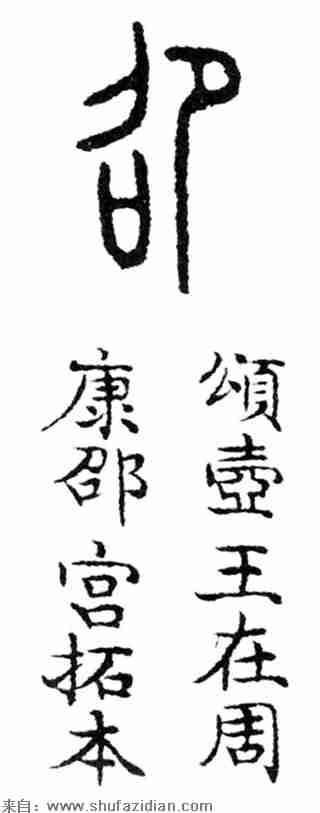 邵
頌壺王在周
康邵宮拓本
来自：www.shufazidian.com